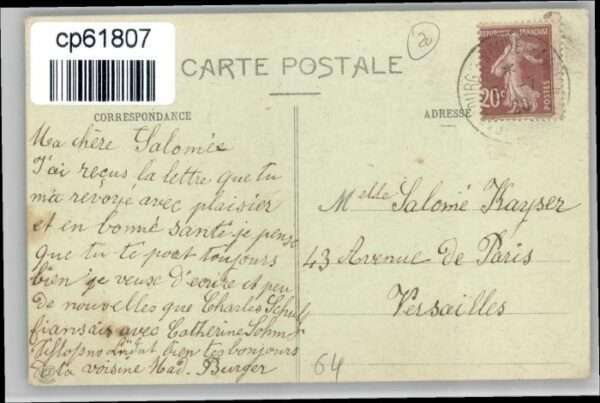 cp61807
20
CARTE POSTALE
RÉPUBLIQUE FRANÇAISE
20c
POSTES
CORRESPONDANCE
ADRESSE
Ma chère Salomée
J'ai reçus la lettre que tu
m'a revoyé avec plaisier
et en bonne santé je pense
que tu te poat toujours
bien je veuse d'ecrire et peu
de nouvelles que Charles Schulz
fiansais avec Catherine Sohm
bien tes bonjours
de la voisine Mad. Burger
Melle Salomé Kayser
43 Avenue de Paris
Versailles
64